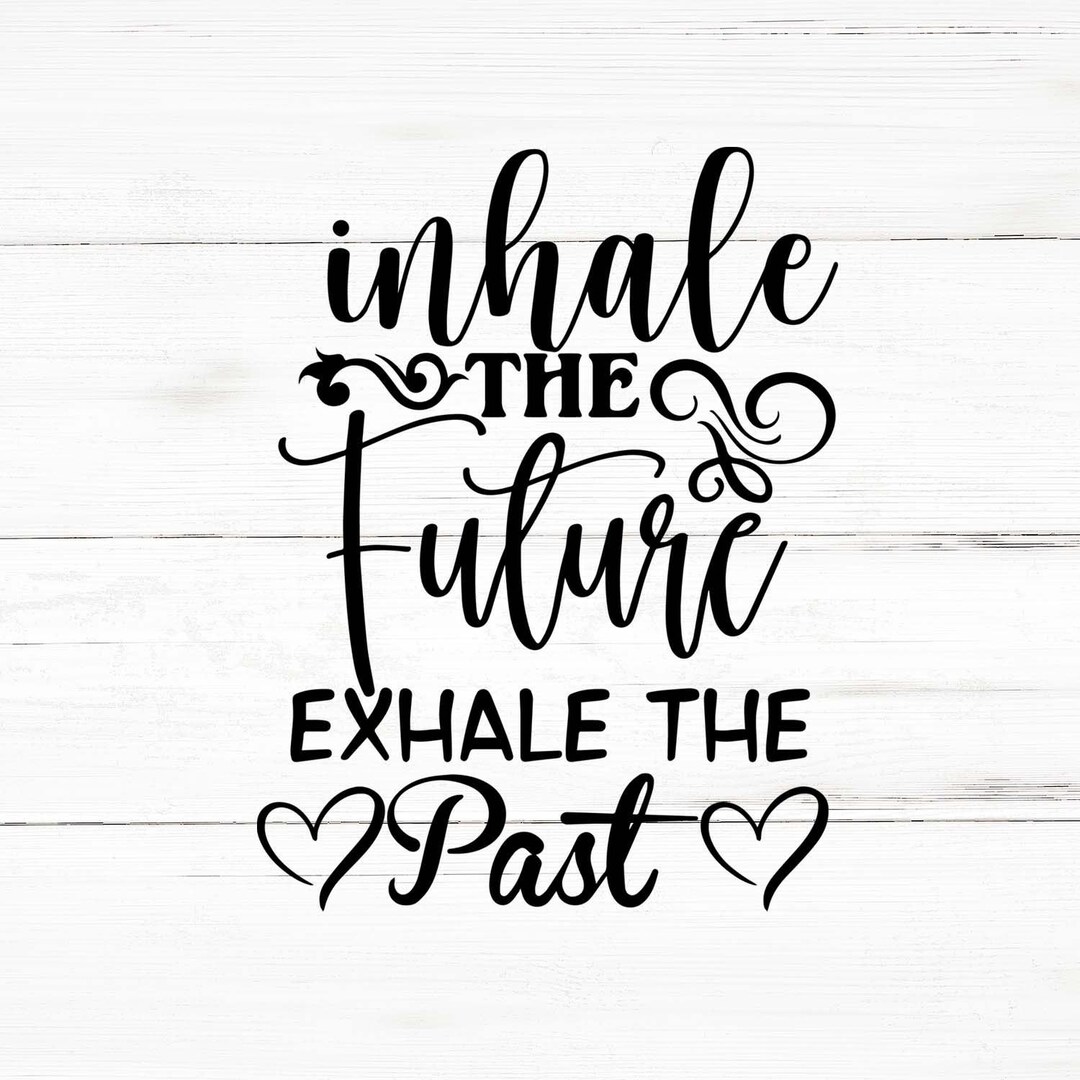 inhale
THE
Future
EXHALE THE
Past